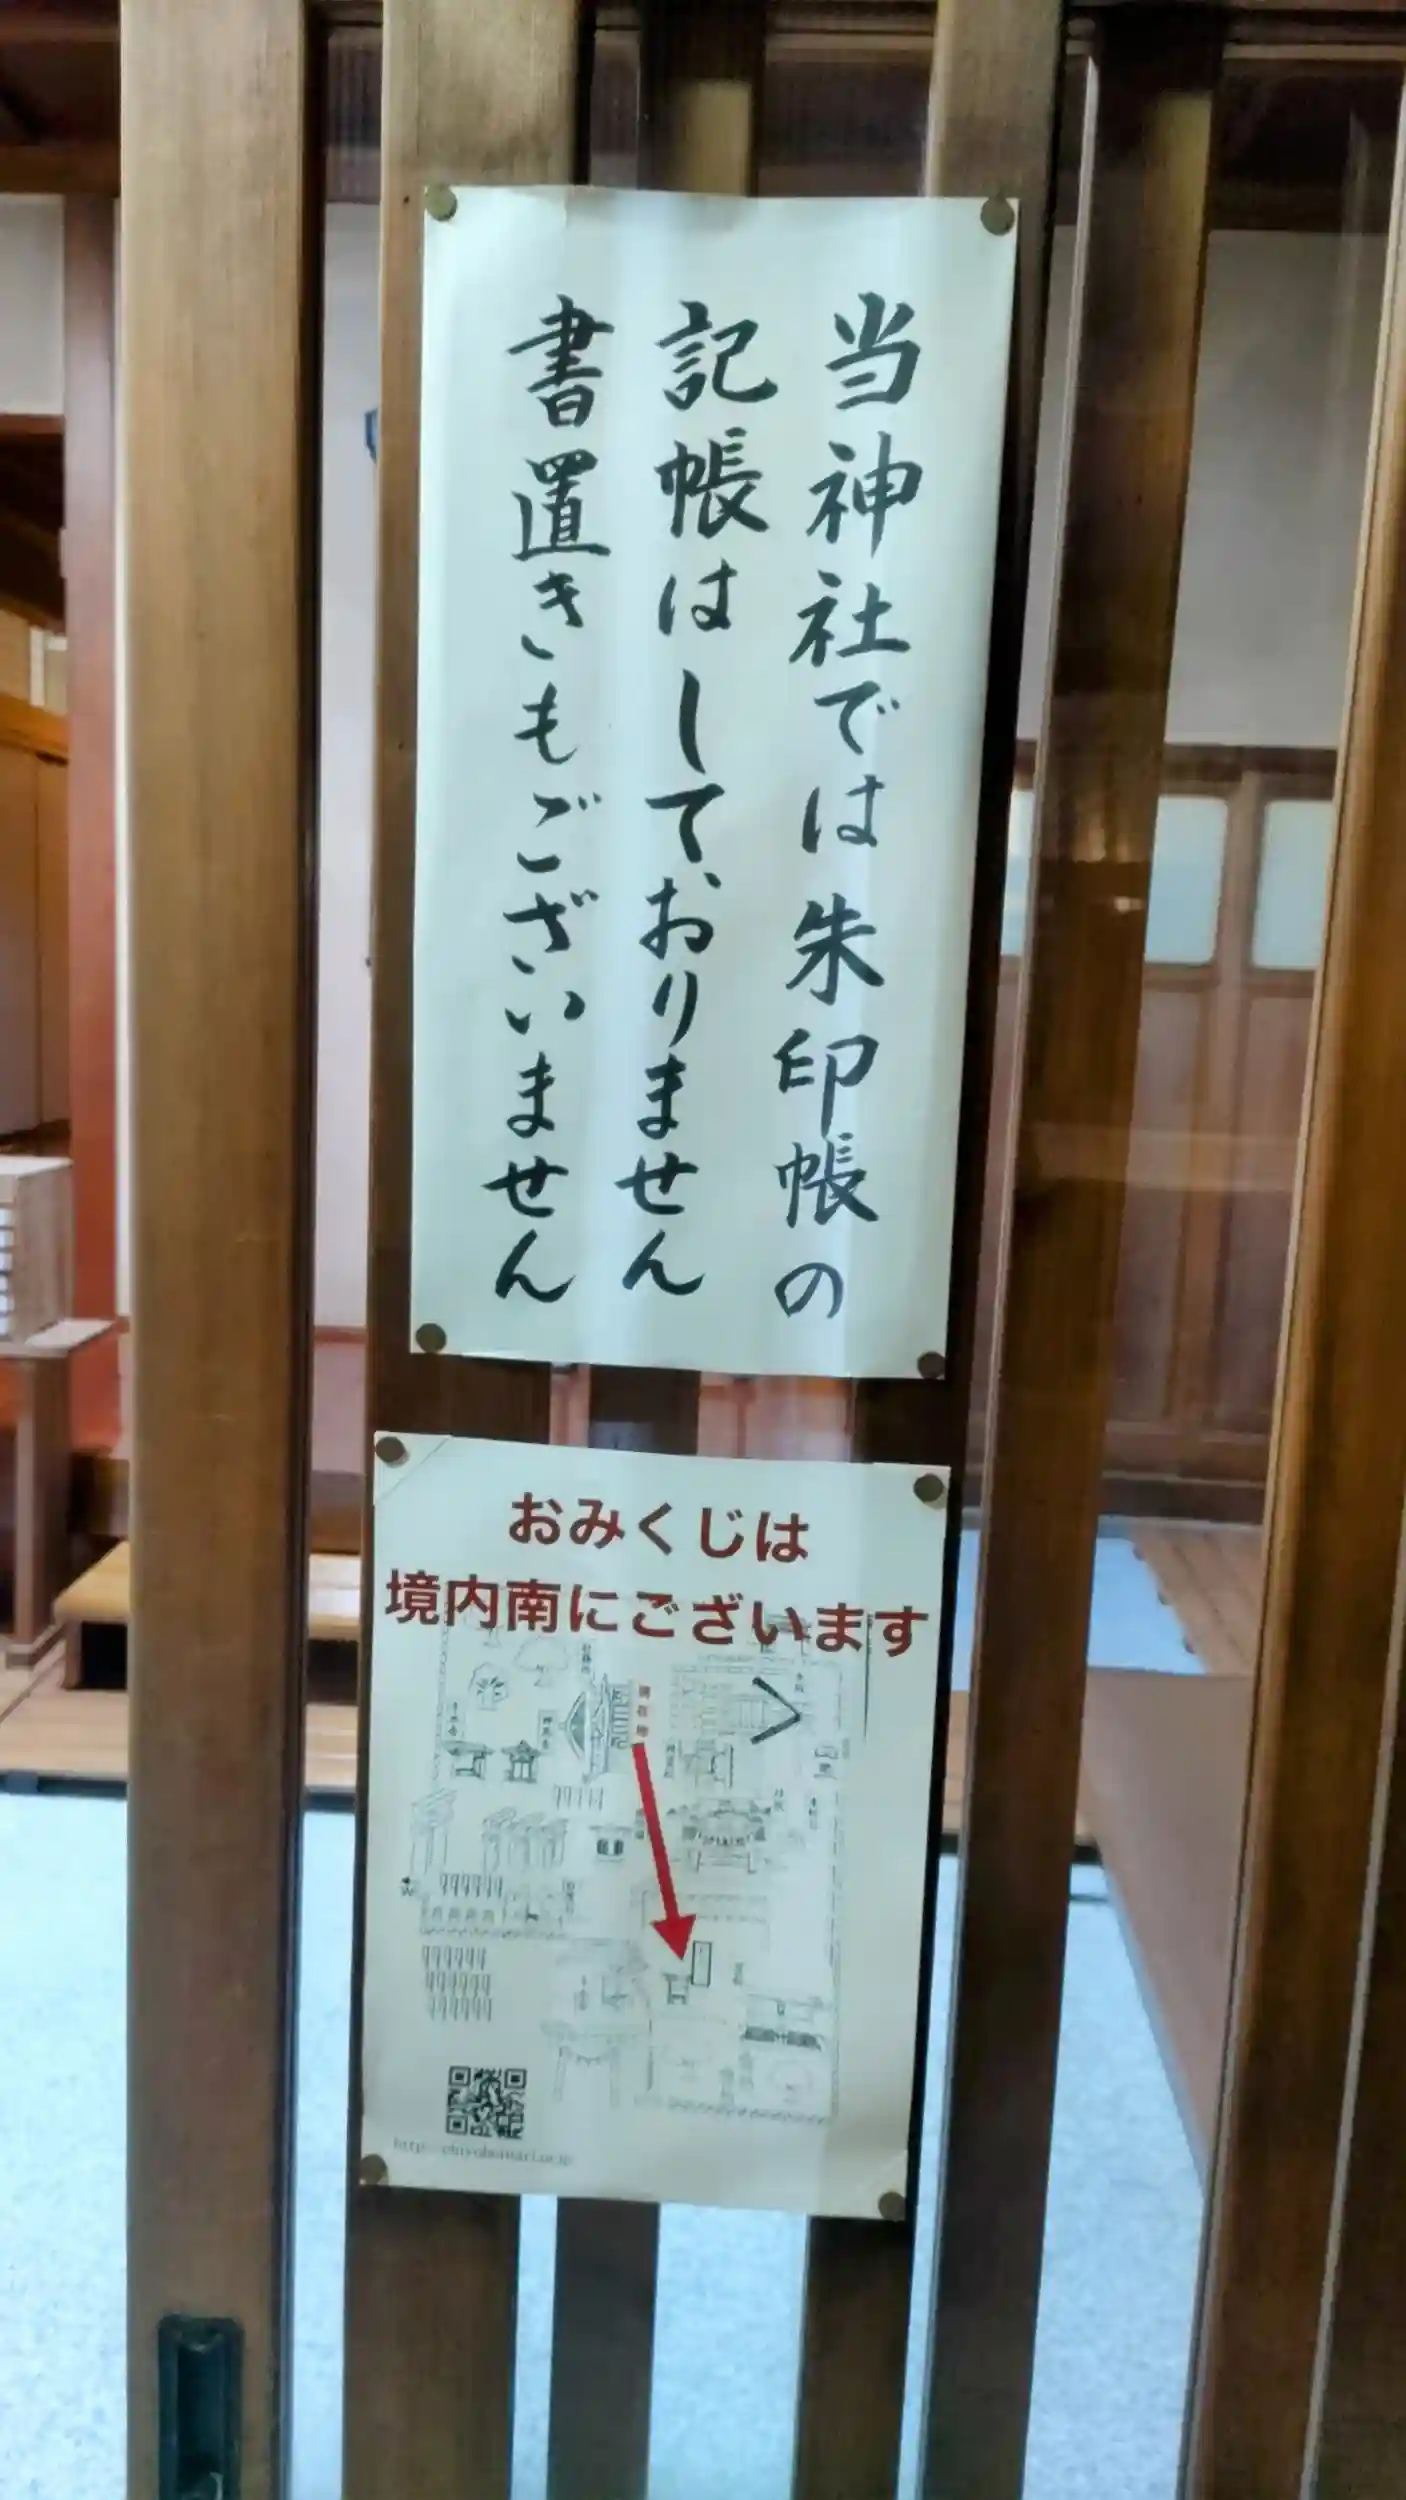 当神社では朱印帳の
記帳はしておりません
書置きもございません
おみくじは
境内南にございます
現在地